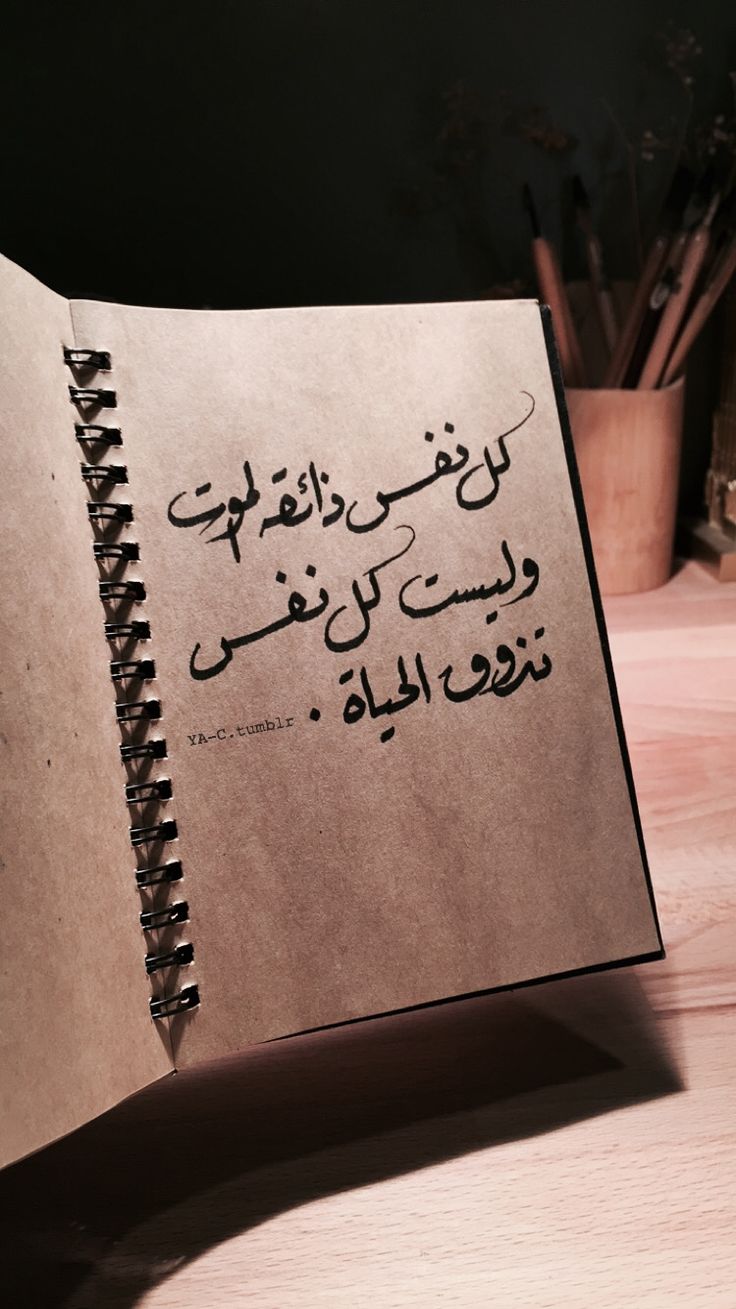 كل نفس ذائقه الموت
وليست كل نفس
تذوق الحياة .
YA-C.tumblr